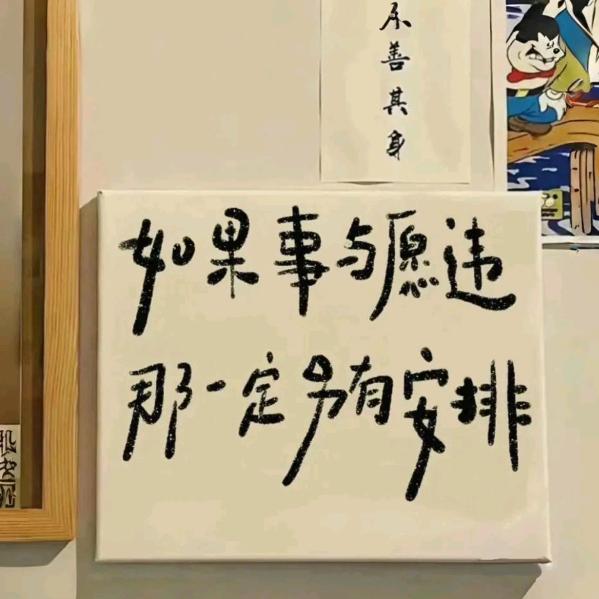 乐善其身
如果事与愿违
那一定另有安排